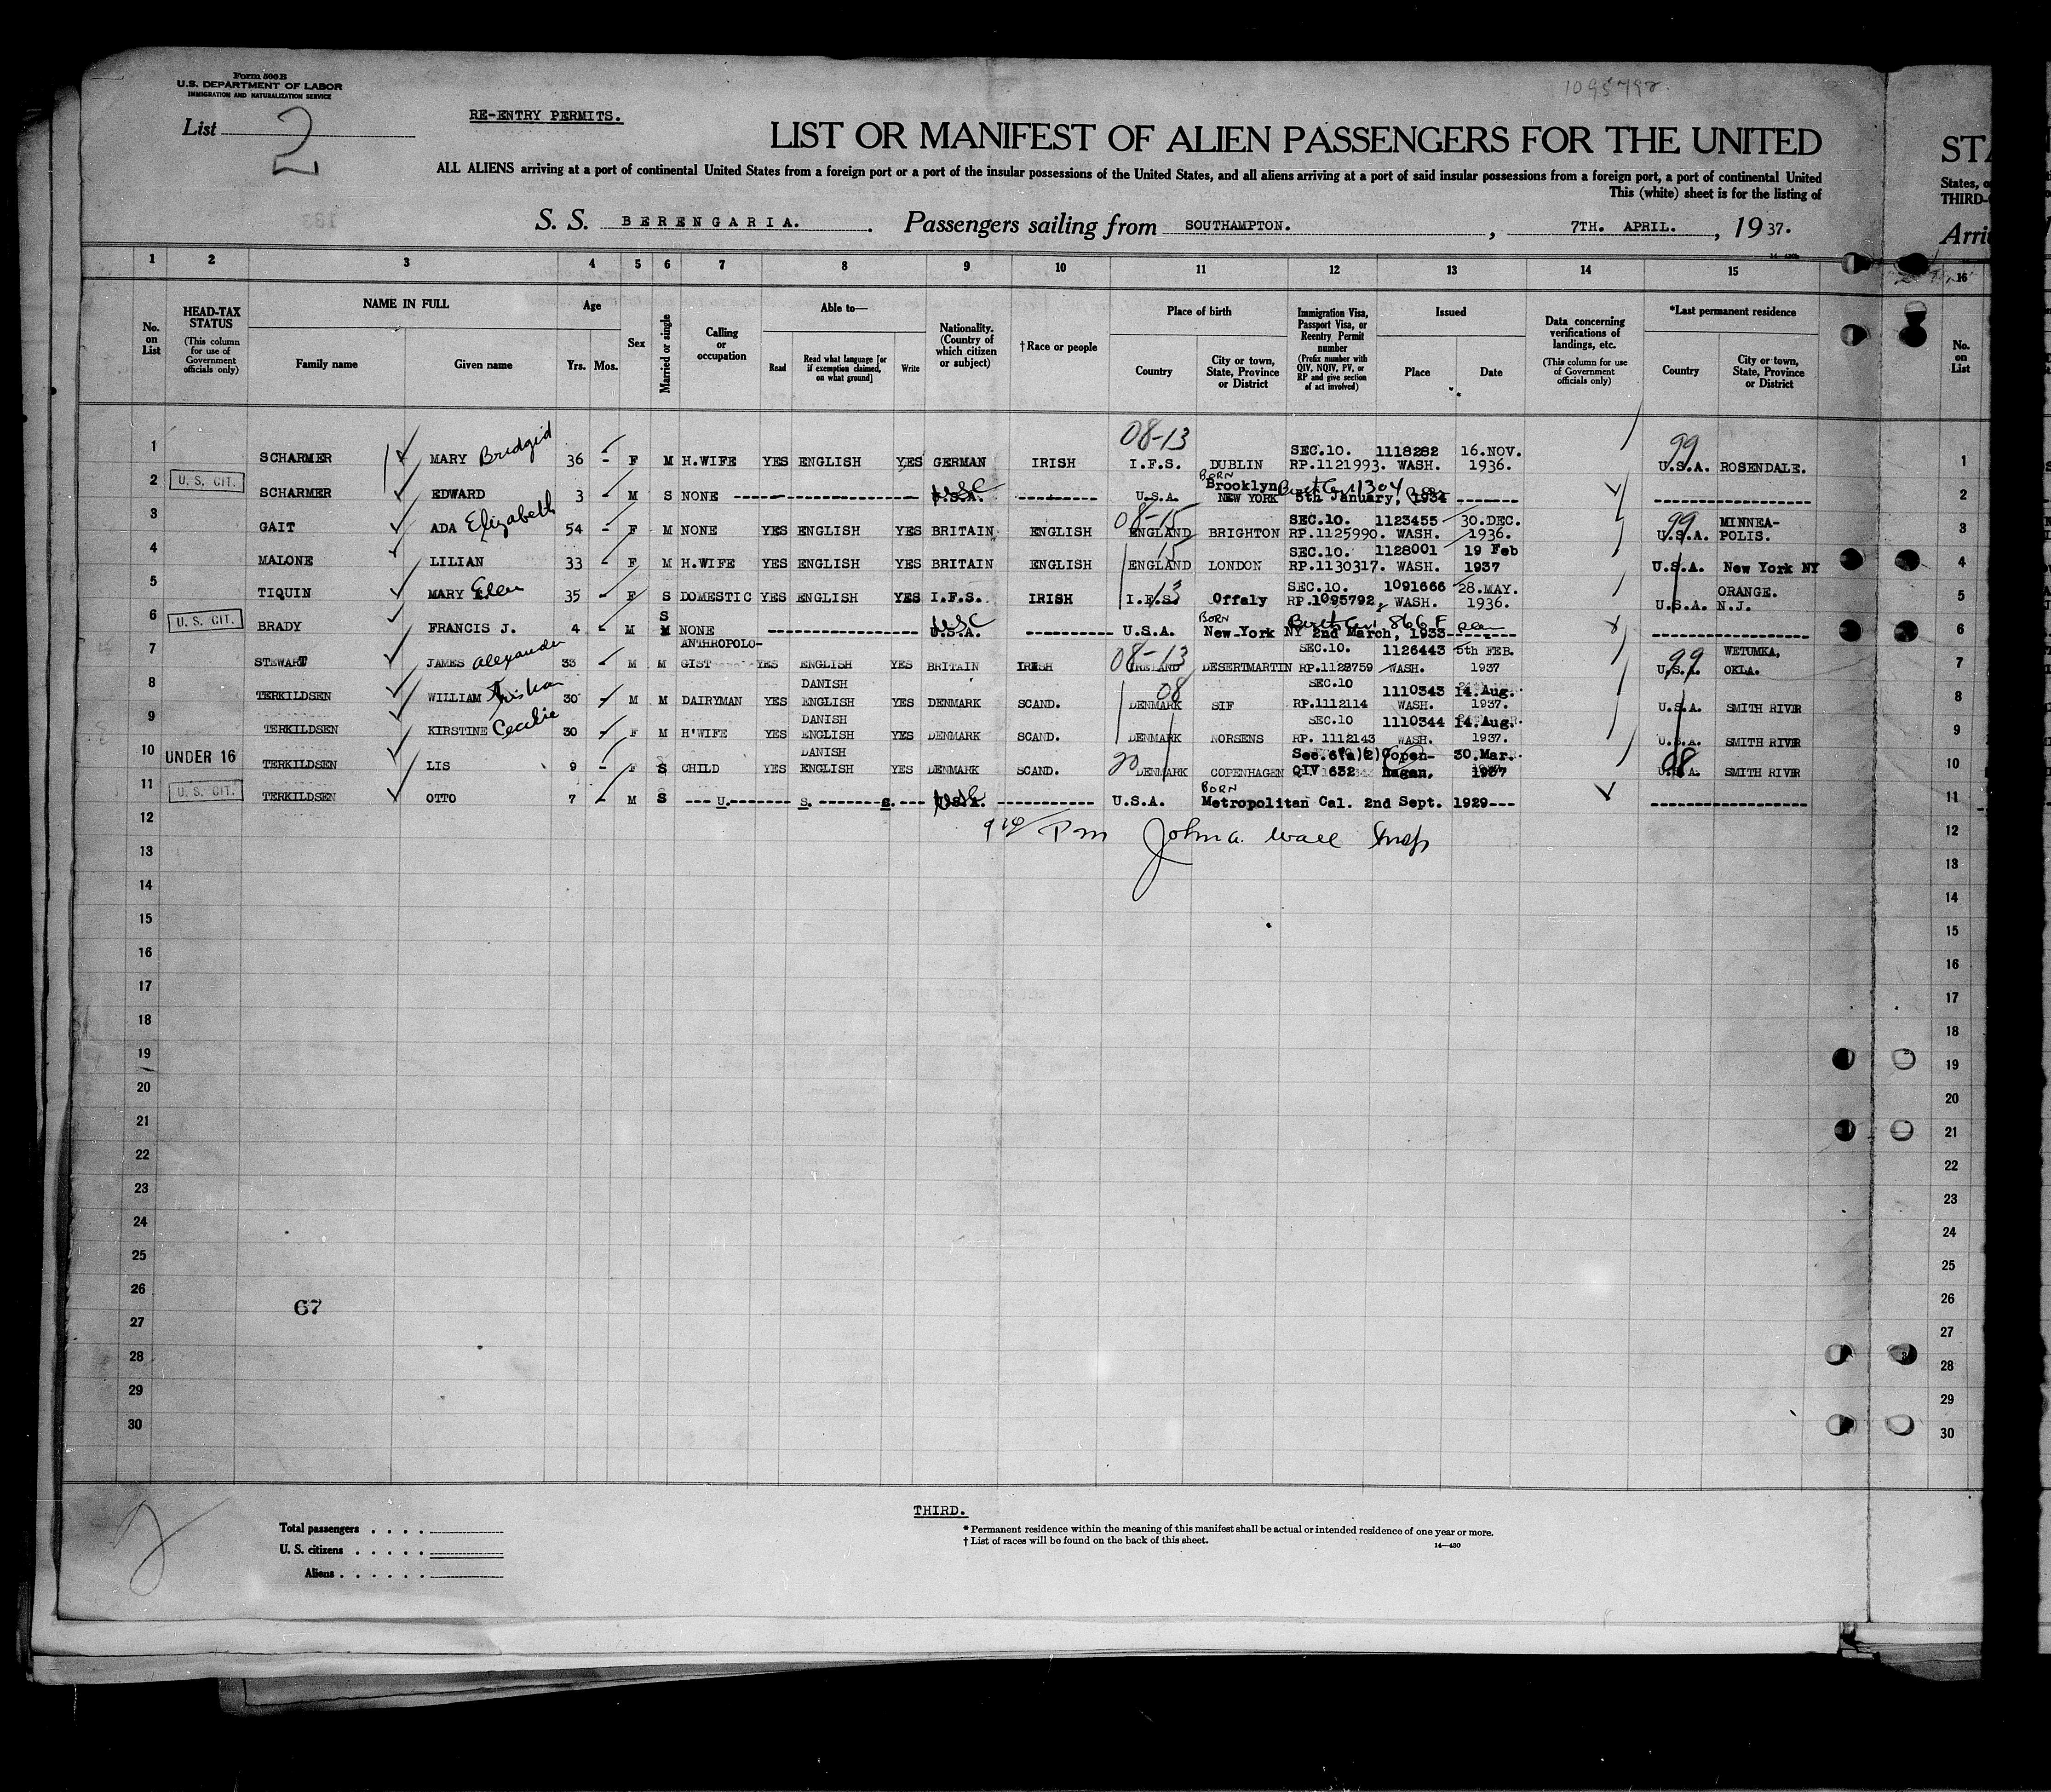 1095792.
Form 500 B
U.S. DEPARTMENT OF LABOR
IMMIGRATION AND NATURALIZATION SERVICE
List 2
RE-ENTRY PERMITS.
LIST OR MANIFEST OF ALIEN PASSENGERS FOR THE UNITED
ALL ALIENS arriving at a port of continental United States from a foreign port or a port of the insular possessions of the United States, and all aliens arriving at a port of said insular possessions from a foreign port, a port of continental United
This (white) sheet is for the listing of
S. S. BERENGARIA. Passengers sailing from SOUTHAMPTON. , 7TH. APRIL. , 19 37.
STA
States, o
THIRD-
Arri
1 2 3 4 5 6 7 8 9 10 11 12 13 14 15 16
No. on List
HEAD-TAX STATUS
(This column for use of Government officials only)
NAME IN FULL
Family name
Given name
Age
Yrs. Mos.
Sex
Married or single
Calling or occupation
Able to—
Read
Read what language [or if exemption claimed, on what ground]
Write
Nationality. (Country of which citizen or subject)
† Race or people
Place of birth
Country
City or town, State, Province or District
Immigration Visa, Passport Visa, or Reentry Permit number
(Prefix number with QIV, NQIV, PV, or RP and give section of act involved)
Issued
Place
Date
Data concerning verifications of landings, etc.
(This column for use of Government officials only)
*Last permanent residence
Country
City or town, State, Province or District
No. on List
1 SCHARMER MARY Bridgid 36 - F M H.WIFE YES ENGLISH YES GERMAN IRISH 08-13 I.F.S. DUBLIN SEC.10. RP.1121993. 1118282 WASH. 16.NOV. 1936. 99 U.S.A. ROSENDALE. 1
2 U. S. CIT. SCHARMER EDWARD 3 - M S NONE U.S.A. USC U.S.A. BORN Brooklyn NEW YORK Birth Cert 1304 5th January, 1934 2
3 GAIT ADA Elizabeth 54 - F M NONE YES ENGLISH YES BRITAIN ENGLISH 08-15 ENGLAND BRIGHTON SEC.10. RP.1125990. 1123455 WASH. 30.DEC. 1936. 99 U.S.A. MINNEA- POLIS. 3
4 MALONE LILIAN 33 - F M H.WIFE YES ENGLISH YES BRITAIN ENGLISH 15 ENGLAND LONDON SEC.10. RP.1130317. 1128001 WASH. 19 Feb 1937 U.S.A. New York NY 4
5 TIQUIN MARY Ellen 35 - F S DOMESTIC YES ENGLISH YES I.F.S. IRISH 13 I.F.S. Offaly SEC.10. RP.1095792, 1091666 WASH. 28.MAY. 1936. U.S.A. ORANGE. N.J. 5
6 U. S. CIT. BRADY FRANCIS J. 4 - M S M NONE U.S.A. USC U.S.A. BORN New York NY Birth Cert 866 F 2nd March, 1933 6
7 STEWART JAMES Alexander 33 - M M ANTHROPOLO- GIST YES ENGLISH YES BRITAIN IRISH 08-13 IRELAND DESERTMARTIN SEC.10. RP.1128759 1126443 WASH. 5th FEB. 1937 99 U.S.A. WETUMKA, OKLA. 7
8 TERKILDSEN WILLIAM 30 - M M DAIRYMAN YES DANISH ENGLISH YES DENMARK SCAND. 08 DENMARK SIF SEC.10 RP.1112114 1110343 WASH. 14.Aug. 1937. U.S.A. SMITH RIVER 8
9 TERKILDSEN KIRSTINE Cecilie 30 - F M H'WIFE YES DANISH ENGLISH YES DENMARK SCAND. DENMARK NORSENS SEC.10 RP. 1112143 1110344 WASH. 14.Aug. 1937. U.S.A. SMITH RIVER 9
10 UNDER 16 TERKILDSEN LIS 9 - F S CHILD YES DANISH ENGLISH YES DENMARK SCAND. 20 DENMARK COPENHAGEN Sec.6(a)(2) QIV 632 Copen- hagen. 30 Mar. 1937 08 U.S.A. SMITH RIVER 10
11 U. S. CIT. TERKILDSEN OTTO 7 - M S U. S. S. U.S.A. U.S.A. BORN Metropolitan Cal. 2nd Sept. 1929 11
12 12
9 10/ Pm John A. Wall Insp
13 13
14 14
15 15
16 16
17 17
18 18
19 19
20 20
21 21
22 22
23 23
24 24
25 25
26 26
67
27 27
28 28
29 29
30 30
THIRD.
2
Total passengers . . . .
U. S. citizens . . . . .
Aliens . . . . . .
* Permanent residence within the meaning of this manifest shall be actual or intended residence of one year or more.
† List of races will be found on the back of this sheet.
14—430